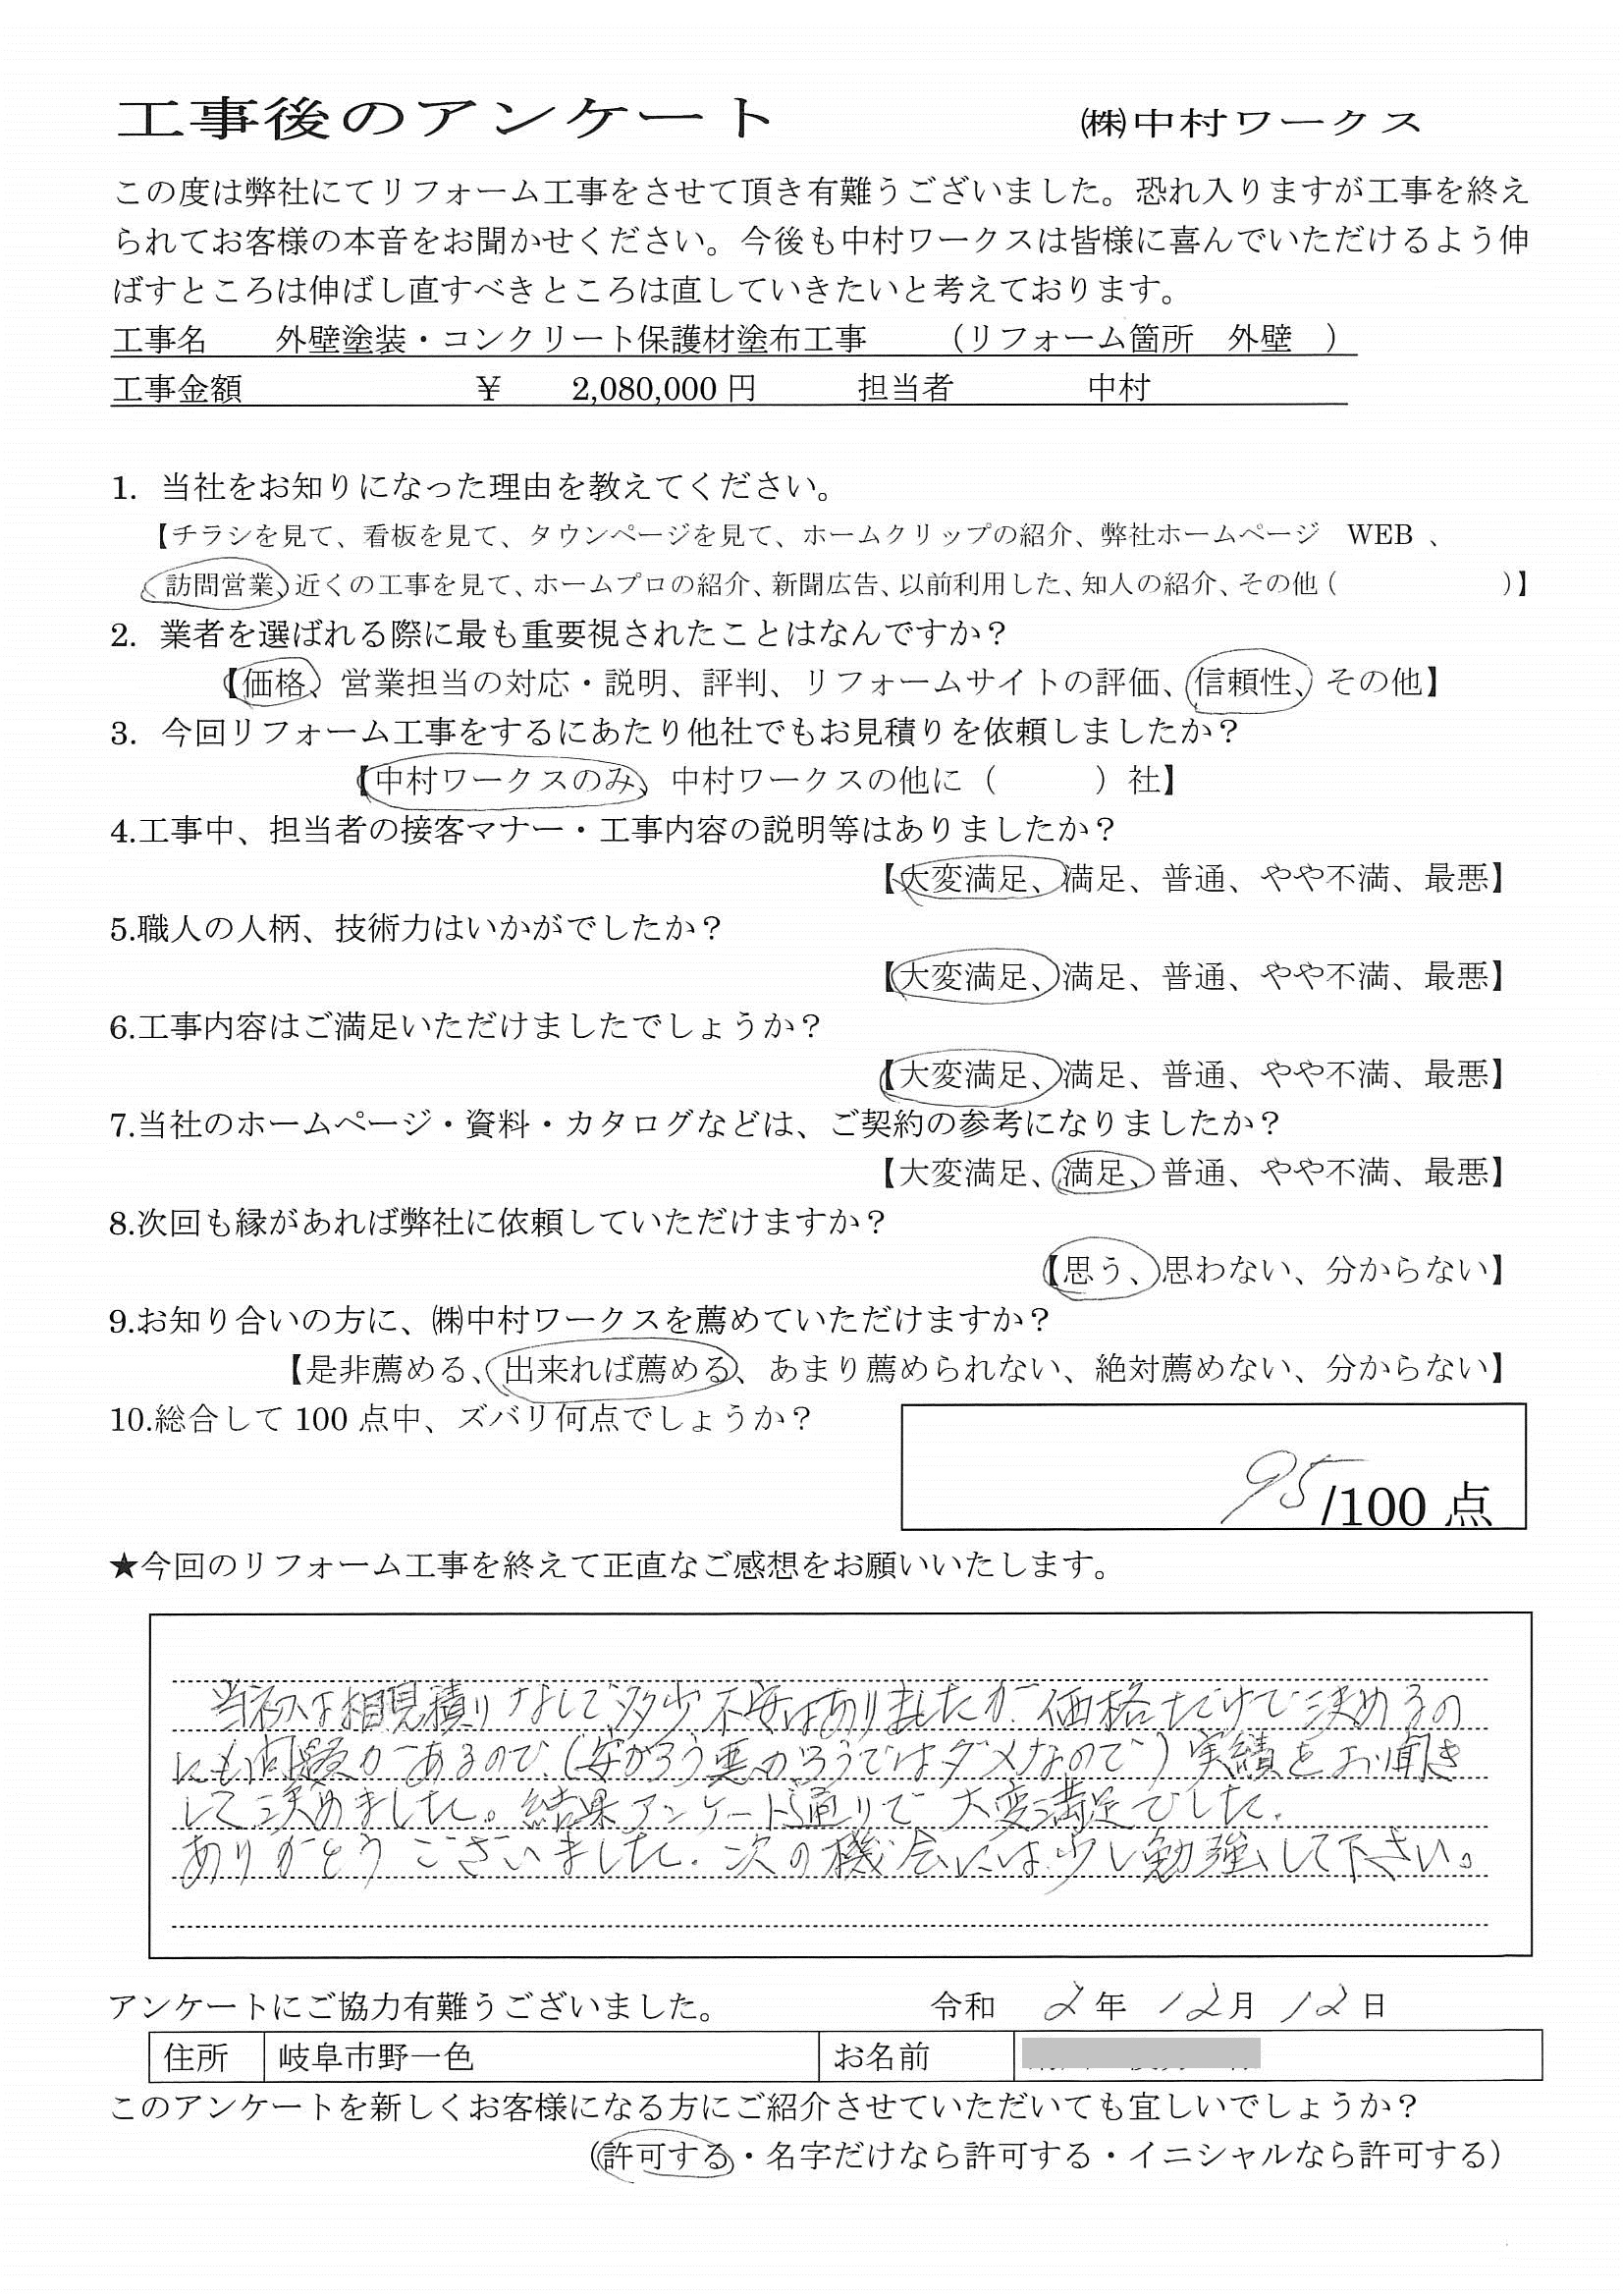 工事後のアンケート　㈱中村ワークス
この度は弊社にてリフォーム工事をさせて頂き有難うございました。恐れ入りますが工事を終え
られてお客様の本音をお聞かせください。今後も中村ワークスは皆様に喜んでいただけるよう伸
ばすところは伸ばし直すべきところは直していきたいと考えております。
工事名　外壁塗装・コンクリート保護材塗布工事　（リフォーム箇所　外壁　）
工事金額　￥　2,080,000 円　担当者　中村
1. 当社をお知りになった理由を教えてください。
【チラシを見て、看板を見て、タウンページを見て、ホームクリップの紹介、弊社ホームページ　WEB 、
訪問営業、近くの工事を見て、ホームプロの紹介、新聞広告、以前利用した、知人の紹介、その他（　）】
2. 業者を選ばれる際に最も重要視されたことはなんですか？
【価格、営業担当の対応・説明、評判、リフォームサイトの評価、信頼性、その他】
3. 今回リフォーム工事をするにあたり他社でもお見積りを依頼しましたか？
【中村ワークスのみ、中村ワークスの他に（　）社】
4.工事中、担当者の接客マナー・工事内容の説明等はありましたか？
【大変満足、満足、普通、やや不満、最悪】
5.職人の人柄、技術力はいかがでしたか？
【大変満足、満足、普通、やや不満、最悪】
6.工事内容はご満足いただけましたでしょうか？
【大変満足、満足、普通、やや不満、最悪】
7.当社のホームページ・資料・カタログなどは、ご契約の参考になりましたか？
【大変満足、満足、普通、やや不満、最悪】
8.次回も縁があれば弊社に依頼していただけますか？
【思う、思わない、分からない】
9.お知り合いの方に、㈱中村ワークスを薦めていただけますか？
【是非薦める、出来れば薦める、あまり薦められない、絶対薦めない、分からない】
10.総合して 100 点中、ズバリ何点でしょうか？
95/100 点
★今回のリフォーム工事を終えて正直なご感想をお願いいたします。
当初は相見積りなしで多少不安はありましたが、価格だけで決めるの
にも問題があるので、（安かろう悪かろうではダメなので）実績をお聞き
して決めました。結果アンケート通りで大変満足でした。
ありがとうございました。次の機会には少し勉強して下さい。
アンケートにご協力有難うございました。　令和 2年 12月 12日
住所　岐阜市野一色　お名前
このアンケートを新しくお客様になる方にご紹介させていただいても宜しいでしょうか？
（許可する・名字だけなら許可する・イニシャルなら許可する）